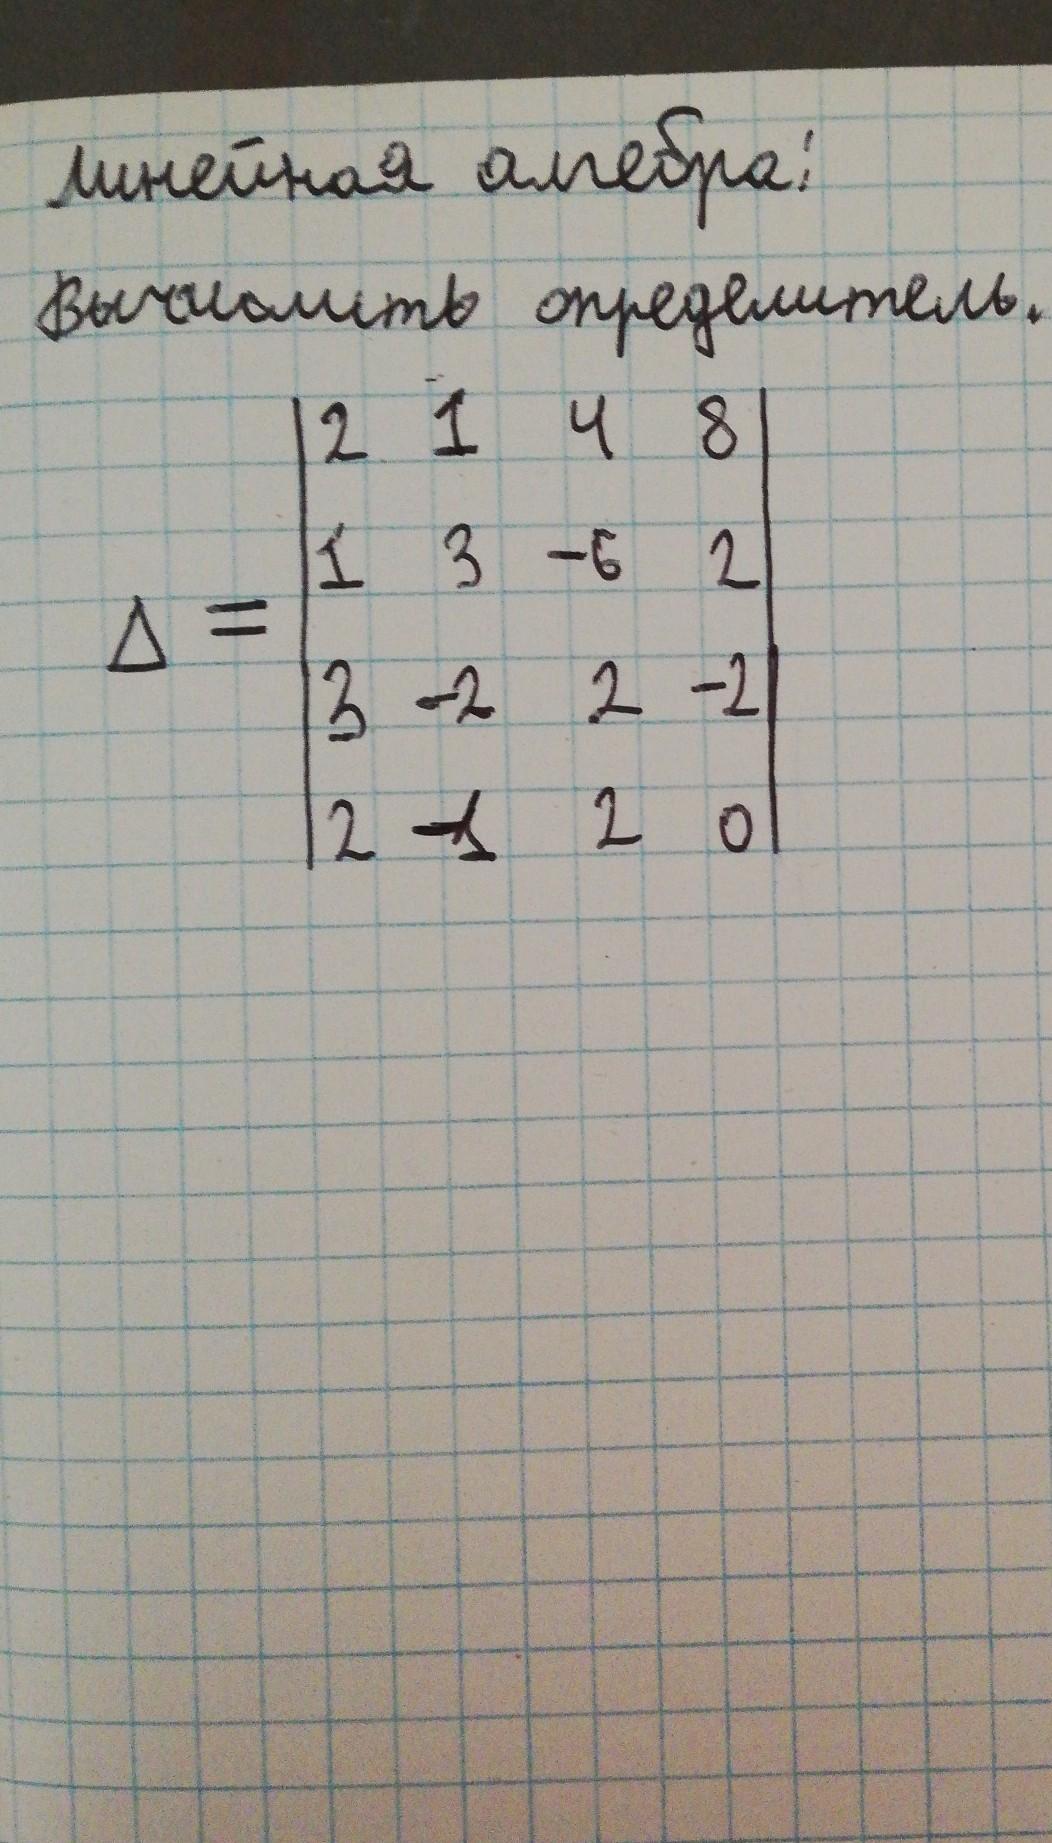 Линейная алгебра:
Вычислить определитель.
2 1 4 8
1 3 -6 2
Δ =
3 -2 2 -2
2 -1 2 0